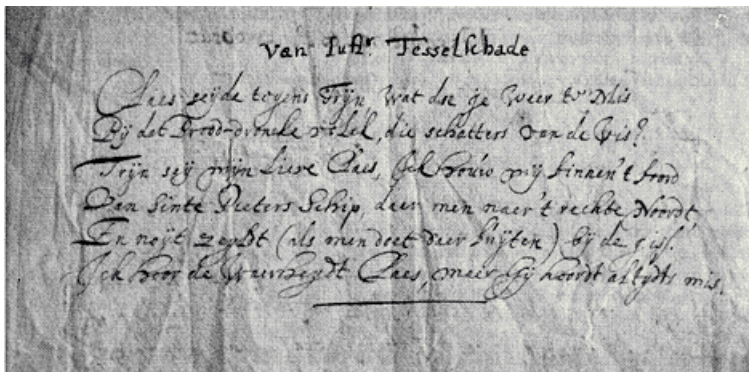 van Juffr. Tesselschade
Claes seyde tegens Trijn, wat doe je weer te Mis
Bij dat Broodroncke volck, die schatters van de vis?
Trijn sey mijn lieve Claes, Ick houw mij binnen't boord
Van Sinte Pieters Schip, daer men naer't rechte Noordt
En nojt zeyldt (als men doet daer buijten) bij de giss.
Ick hoor de Waerheydt Claes, maer ghij hoordt altydts mis.